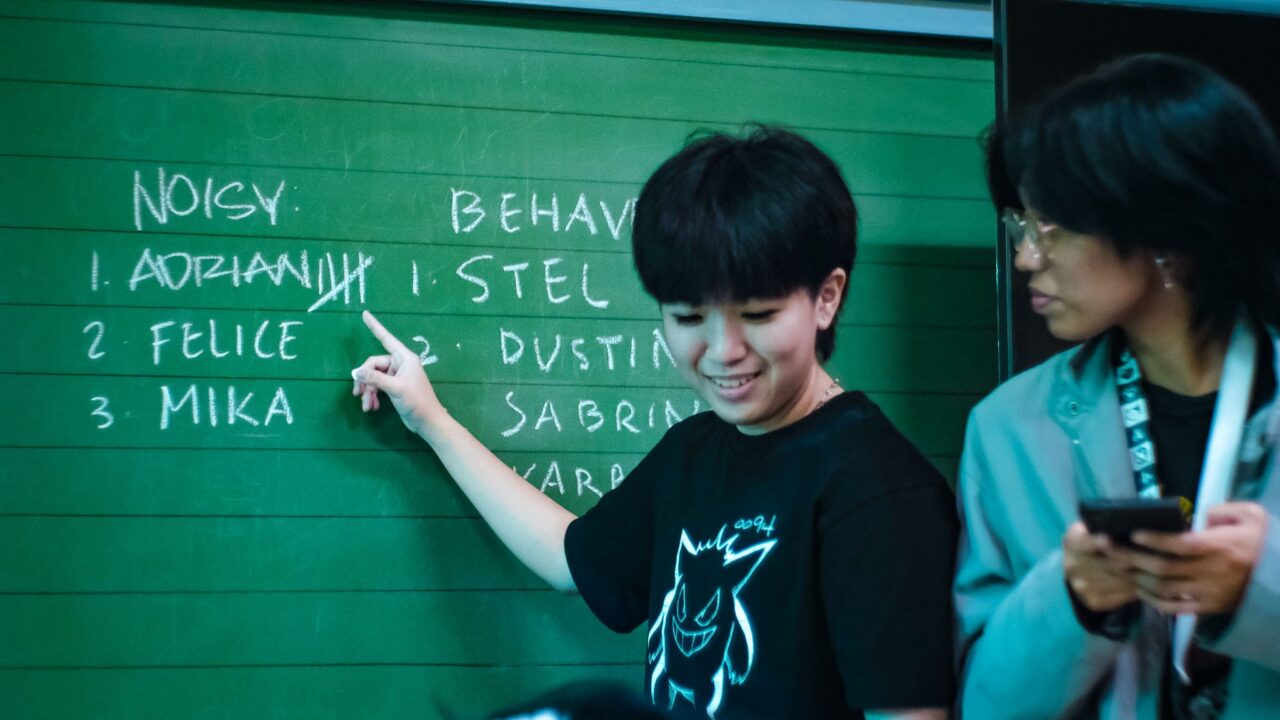 NOISY:
1. ADRIAN
2. FELICE
3. MIKA
BEHAV
1. STEL
2. DUSTIN
SABRIN
KARA
0094